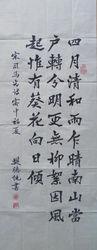 四月清和雨乍晴南山當
戶轉分明更無柳絮因風
起惟有葵花向日傾
宋司馬光詩客中初夏